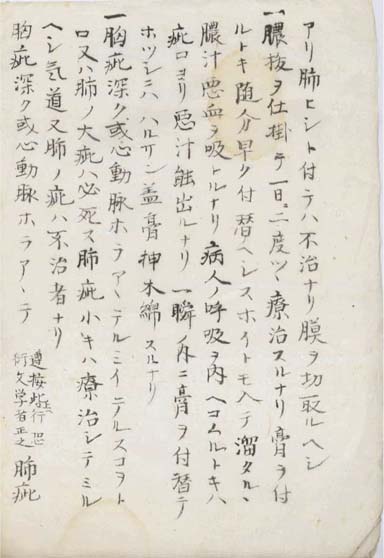 アリ肺ヒシト付テハ不治ナリ膜ヲ切取ルヘシ
一膿抜ヲ仕掛テ一日ニ二度ツヽ療治スルナリ膏ヲ付
ルトキ随分早ク付替ヘシスホイトモヘテ溜タル
膿汁悪血ヲ吸トルナリ病人ノ呼吸ヲ内ヘコムルトキハ
疵口ヨリ悪汁能出ルナリ一瞬ノ内ニ膏ヲ付替テ
ホツシニハハルサン蓋膏押木綿スルナリ
一胸疵深ク或心動脉ホラアヽテルミイニテルスコヲト
ロ又ハ肺ノ大疵ハ必死ス肺疵小キハ療治シテミル
ヘシ気道又肺ノ疵ハ不治者ナリ
胸疵深ク或心動脉ホラアヽテ
遵按此行恐
衍文学者正之
肺疵